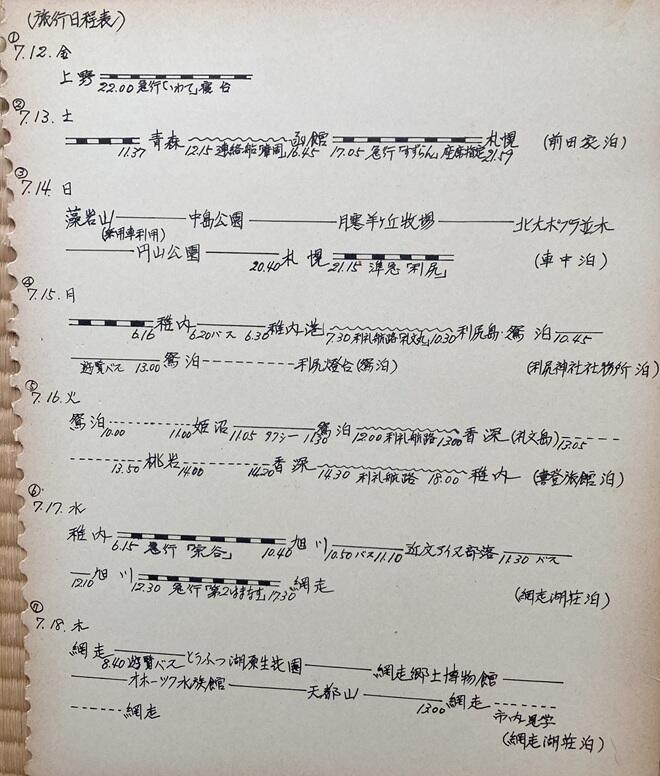 (旅行日程表)
① 7.12.金
上野 22.00 急行「いわて」寝台
② 7.13.土
11.37 青森 12.15 連絡船「摩周」 16.45 函館 17.05 急行「すずらん」座席指定 21.59 札幌 (前田家泊)
③ 7.14.日
藻岩山 中島公園 月寒羊ヶ丘牧場 北大ポプラ並木
(乗用車利用)
円山公園 20.40 札幌 21.15 準急「利尻」 (車中泊)
④ 7.15.月
6.16 稚内 6.20 バス 6.30 稚内港 7.30 利礼航路「礼文丸」 10.30 利尻島・鴛泊 10.45
遊覧バス 13.00 鴛泊 利尻燈台(鴛泊) (利尻神社社務所泊)
⑤ 7.16.火
鴛泊 10.00 11.00 姫沼 11.05 タクシー 11.30 鴛泊 12.00 利礼航路 13.00 香深(礼文島) 13.05
13.50 桃岩 14.00 14.20 香深 14.30 利礼航路 18.00 稚内 (旅館泊)
⑥ 7.17.水
稚内 6.15 急行「宗谷」 10.40 旭川 10.50 バス 11.10 近文アイヌ部落 11.30 バス
12.10 旭川 12.30 急行「第2はまなす」 17.30 網走 (網走湖荘泊)
⑦ 7.18.木
網走 8.40 遊覧バス とうふつ湖原生花園 網走郷土博物館
オホーツク水族館 天都山 13.00 網走 市内見学
網走
(網走湖荘泊)